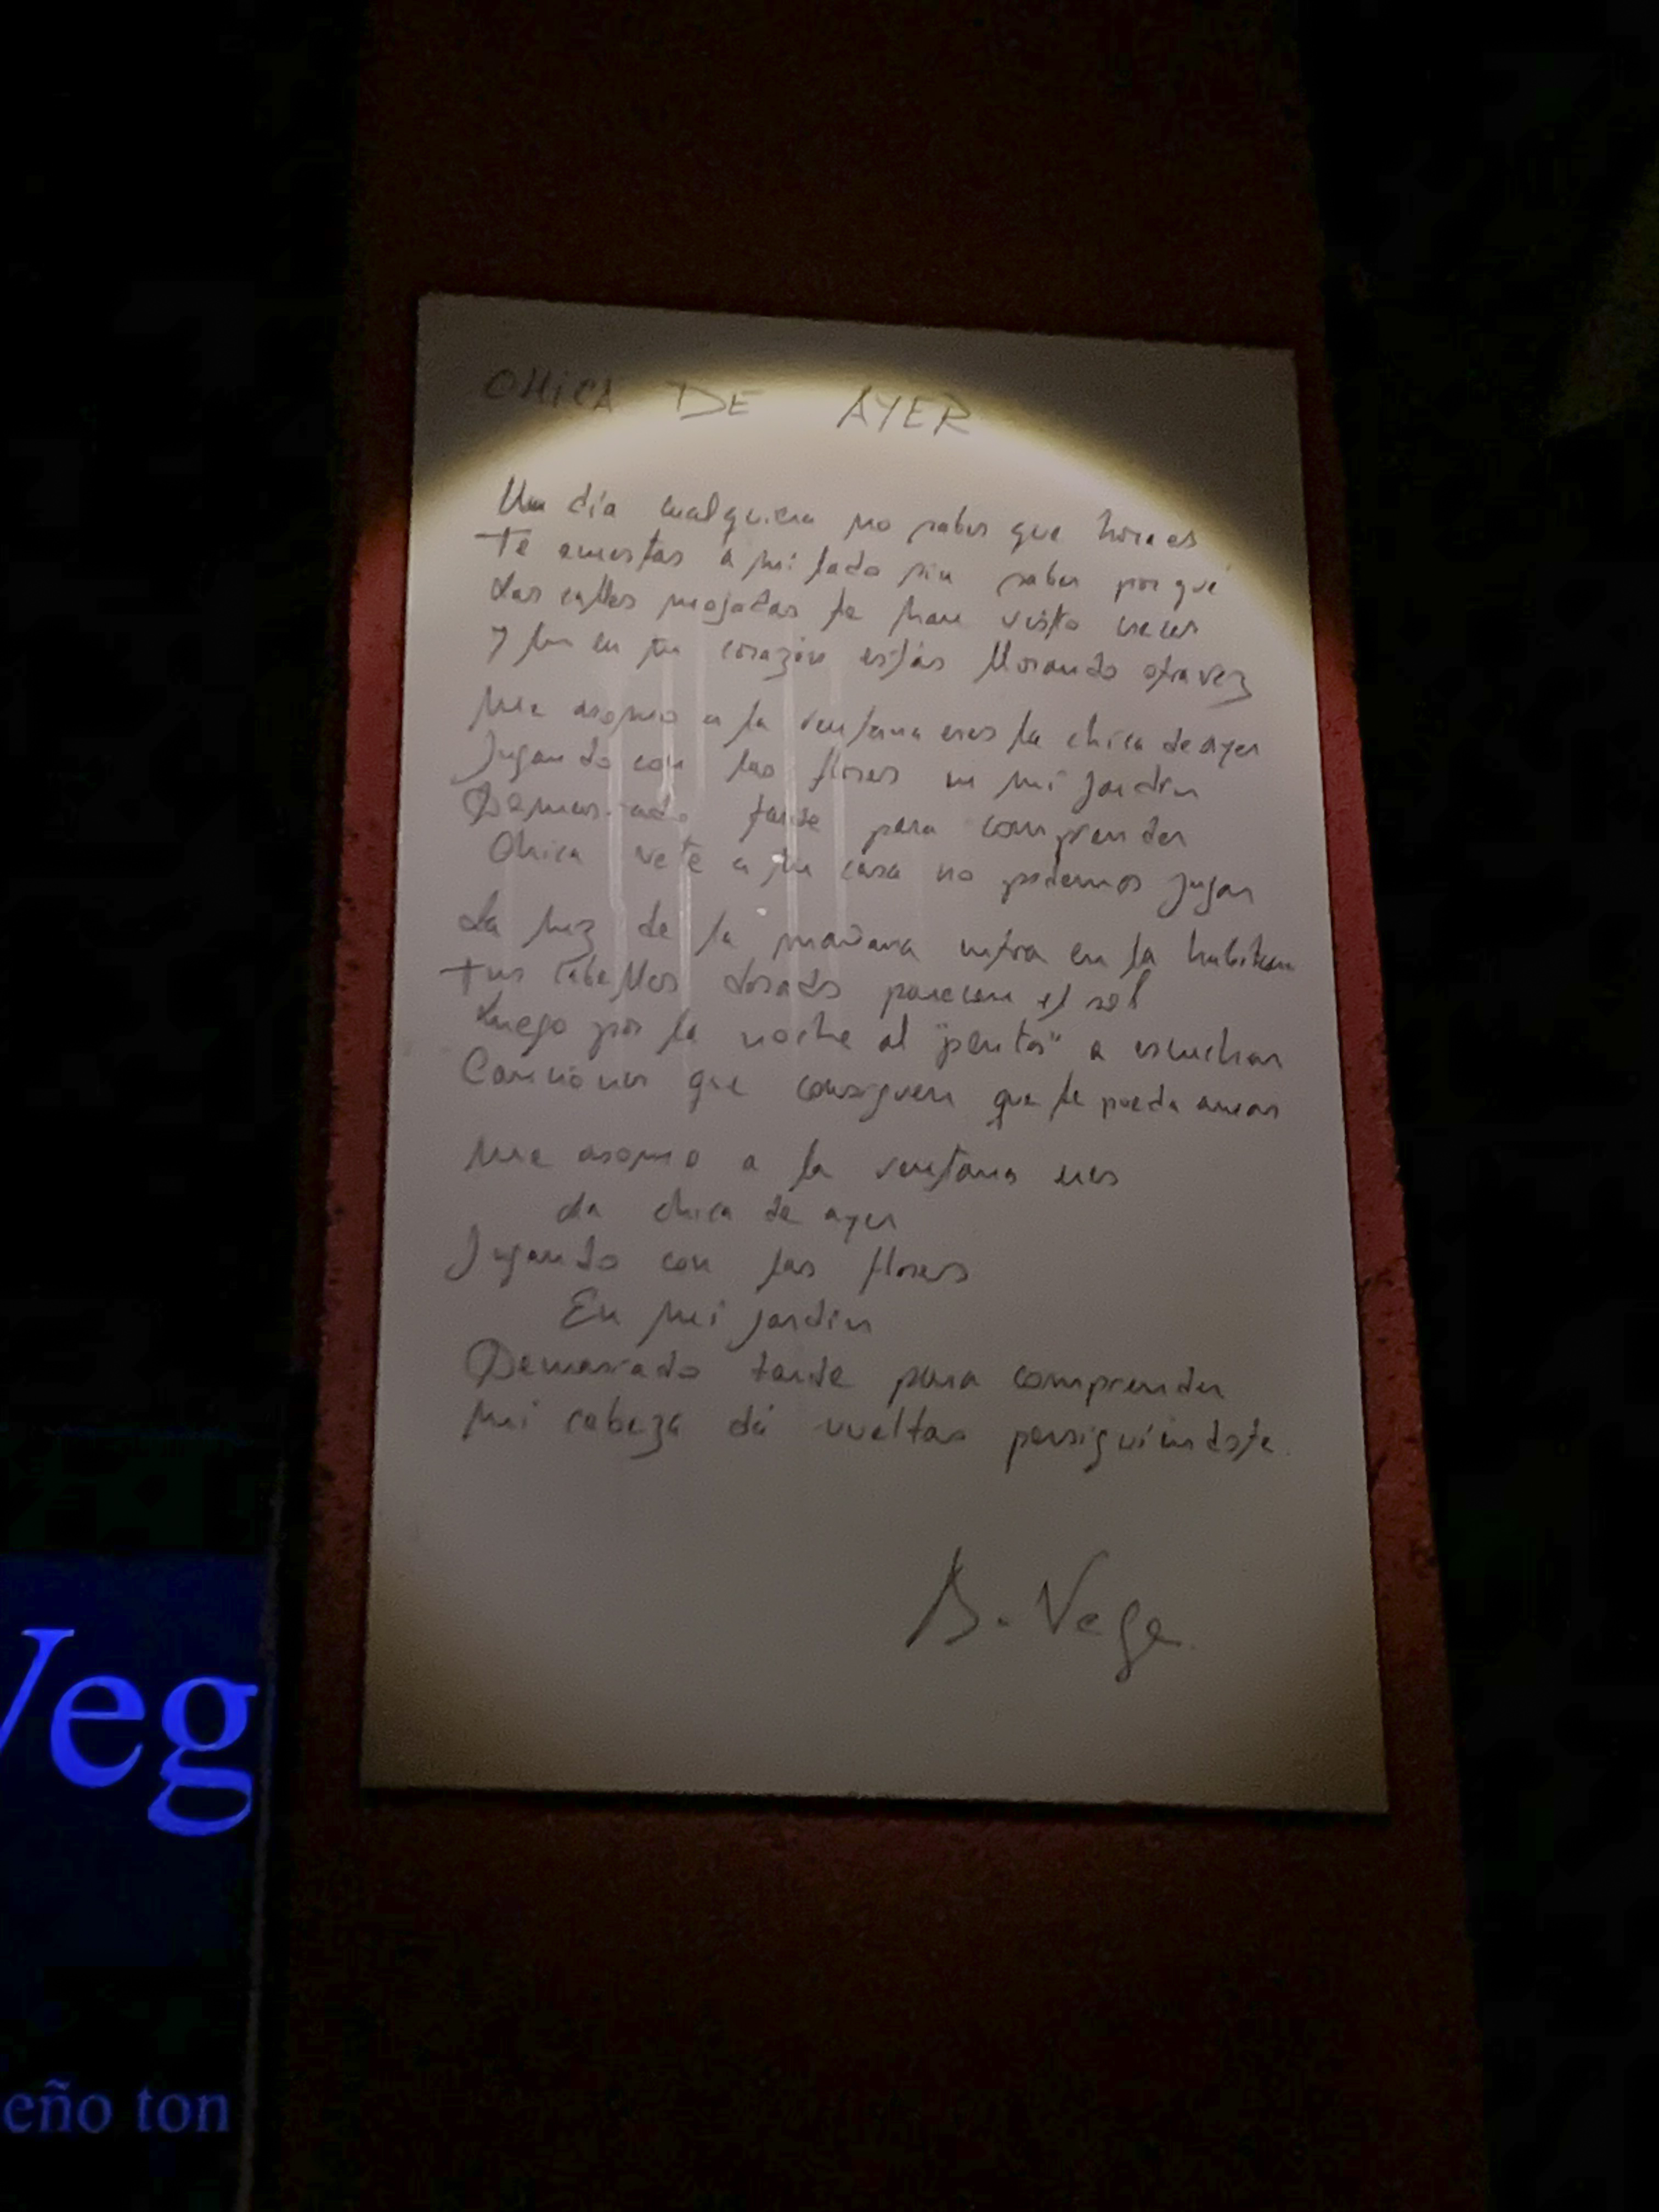 CHICA DE AYER
Un día cualquiera no sabes que hora es
Te acuestas a mi lado sin saber por qué
Las calles mojadas te han visto crecer
y tu en tu corazón estás llorando otra vez
Me asomo a la ventana eres la chica de ayer
Jugando con las flores en mi jardín
Demasiado tarde para comprender
Chica vete a tu casa no podemos jugar
La luz de la mañana entra en la habitación
Tus cabellos dorados parecen el sol
Luego por la noche al "penta" a escuchar
Canciones que consiguen que te pueda amar
Me asomo a la ventana eres
La chica de ayer
Jugando con las flores
En mi jardín
Demasiado tarde para comprender
Mi cabeza dá vueltas persiguiéndote.
A. Vega
Veg
eño ton